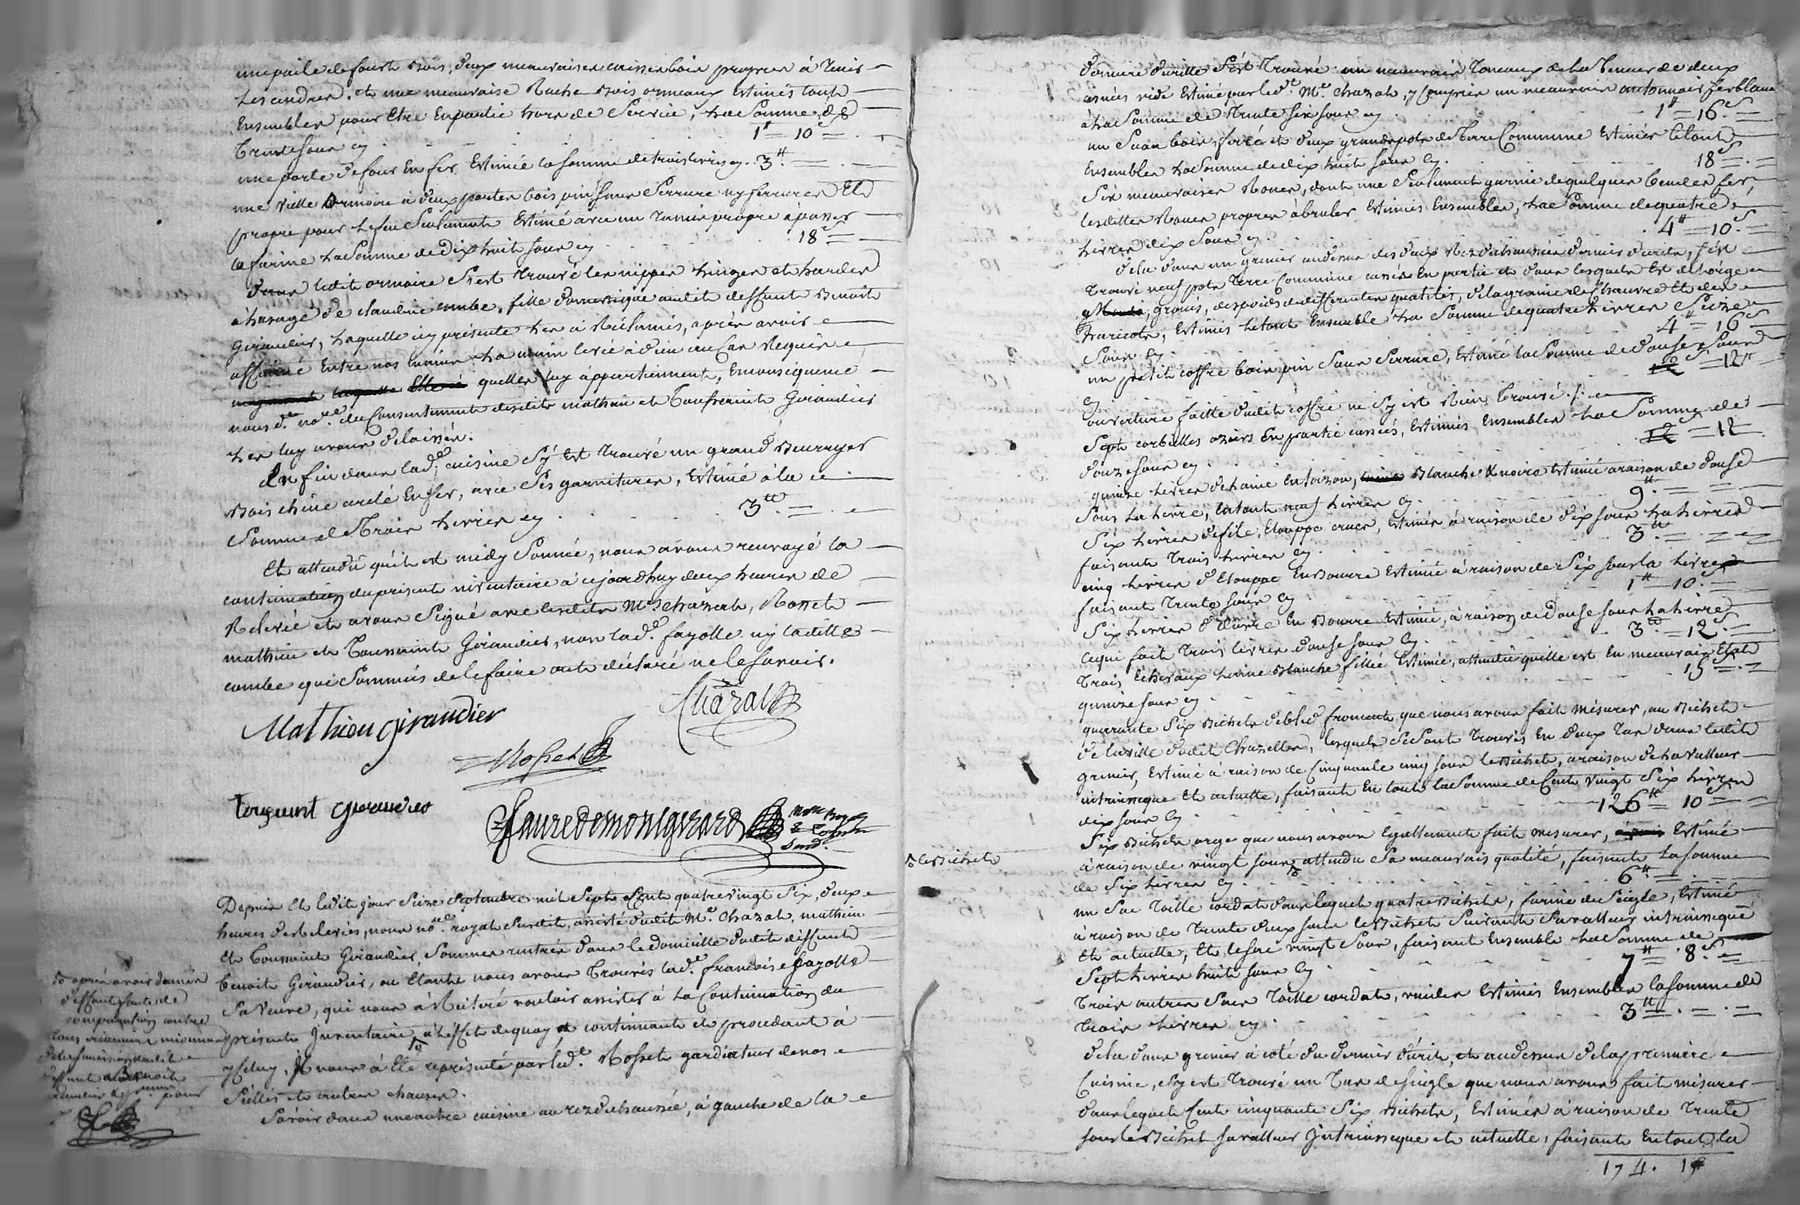 une paile de four bois, deux mauvaises caisses bois propres à tenir
les cendres, et une mauvaise Ruche bois ormeaux Estimés tout
Ensembles pour être En partie hors de Service, la Somme de
trente sous cy . 1# = 10s =
une porte de four En fer Estimée la somme de trois livres cy . 3# =
une vielle Armoire à deux portes bois pin sans Serrure ny ferrures Et
propre pour le feu Seulement Estimé avec un Tamis propre à passer
la farine La Somme de Dix huit sous cy . 18s =
dans ledit armoire S'est trouvé les nippes linges et hardes
à l'usage de claudine combe, fille domestique audit deffunt Benoit
Giraudier, laquelle icy présente les à Réclamés, après avoir
affirmé Entre nos mains la main levée à dieu au Cas Requis
quelles luy appartiennent, En conséquence
nousd. no.re du Consentement desdits mathieu et Toussaint Giraudier
les luy avons délaissés.
Enfin dans lad.e cuisine S'y Est trouvé un grand
Bois chêne arclé En fer, avec Ses garnitures, Estimé à la
Somme de Trois Livres cy . 3# =
Et attendû qu'il est midy Sonnée, nous avons renvoyé la
continuation du présent inventaire à cejourd'huy deux heures de
Relevée et avons Signé avec lesdits Mrs. chazal, Rosset
mathieu et Toussaint Giraudier, non lad.e fayolle ny ladite
combe qui Sommées de le faire ont déclaré ne le Savoir.
Mathieu giraudier
Chazal
Rosset
tousaint giraudier
fauredemontgirard
Depuis Et Ledit jour Seize Septembre mil Sept Cent quatre vingt Six, deux
heures de relevées, nous no.re royal Susdit, assisté dudit Mr. chazal, mathieu
et Toussaint Giraudier, Sommes rentrés dans le domicille dudit deffunt
benoit Giraudier, ou Etant nous avons Trouvés lad.e francoise fayolle
Sa Veuve, qui nous à Réitéré vouloir assister à La Continuation du
présent Inventaire, à l'effet de quoy continuant et procedant à
yceluy, Il nous à été representé par led.t Rosset gardiateur de nos
Scellés et autres choses.
Savoir dans une autre cuisine au rez de chaussée, à gauche de la
après avoir donnée
deffaut faute de
comparution contre
dudit
Benoit
pour
derniere d'icelle S'est trouvé un mauvais Toneaux de la Tenue de deux
anées vide Estimé par led.t Mr. chazal, y compris un mauvais antonnoir fer blanc
à la Somme de Trente Six sous cy . 1# = 16s =
un Seau bois, ferré et deux grands pots de Terre Commune Estimés le tout
Ensembles La Somme de dix huit sous cy . 18s =
Six mauvaises Roues, dont une Seulement garnie de quelques bendes fer,
lesdittes Roues propres à bruler Estimés Ensembles, La Somme de quatre
Livres dix Sous cy . 4# = 10s =
delà dans un grenier au dessus des deux Rez de chaussées derniers décrits, s'est
trouvé neuf pots terre Commune cassés En partie et dans lesquels Est de l'orge
gruais, des pois de differentes qualités, de la graine de Chanvre et des
haricots, Estimés le tout Ensemble la Somme de quatre livres Seize
Sous cy . 4# = 16s
un petit coffre bois pin Sans Serrure, Estimé la Somme de douze Sous
cy . 12s =
ouverture faitte dudit coffre ne S'y est Rien trouvé
Sept corbeilles oziers En partie cassées, Estimées Ensembles La Somme de
douze sous cy . 12 =
quinze Livres de laine En toison, Blanche & noire Estimée à raison de douse
Sous La Livre, Cy tout neuf Livres cy . 9# =
Six Livres de file Etouppe crue, Estimés à raison de dix sous La Livre
faisant trois Livres cy . 3# =
cinq Livres d'Etoupes En Bourre Estimée à raison de Six sous la Livre
faisant Trente Sous cy . 1# = 10s =
Six Livres d'Œuvre En Bourre Estimée, à raison de Douse sous La Livre
ce qui fait trois Livres douse sous cy . 3# = 12s =
trois Echevaux laine Blanche filée Estimée, attendu quille est En mauvais Etat
quinze Sous cy . 15s =
quarante Six Bichets de bled froment, que nous avons fait mésurer, au Bichet
de la ville dudit Chazelles, lesquels Se Sont trouvés En deux Tas dans ledit
grenier, Estimé à raison de Cinquante cinq sous le Bichet, à raison de la valleur
intrinseque Et actuelle, faisant En tout la Somme de Cent vingt Six Livres
dix sous cy . 126# = 10s =
Six Bichets orge que nous avons Egallement fait mesurer, Estimé
à raison de vingt Sous, attendu Sa mauvaise qualité, faisant La Somme
de Six Livres cy . 6# =
le Bichet
un Sac Toille cordat dans lequel quatre Bichets, farine de Seigle, Estimé
à raison de Trente deux sous le Bichet Suivant Sa valleur intrinseque
Et actuelle, Et le Sac vingt Sous, faisant Ensemble La Somme de
Sept Livres huit sous cy . 7# = 8s =
Trois autres Sacs Toille cordat, vuides Estimés Ensembles la Somme de
trois Livres cy . 3# =
delà dans grenier à coté du dernier décrit, et au dessus de la premiere
Cuisine, S'y est trouvé un Tas de Seigle que nous avons fait mésurer
dans lequel Cent cinquante Six Bichets, Estimés à raison de Trente
sous le Bichet Sa valleur Intrinseque et actuelle, faisant En tout la
174 .